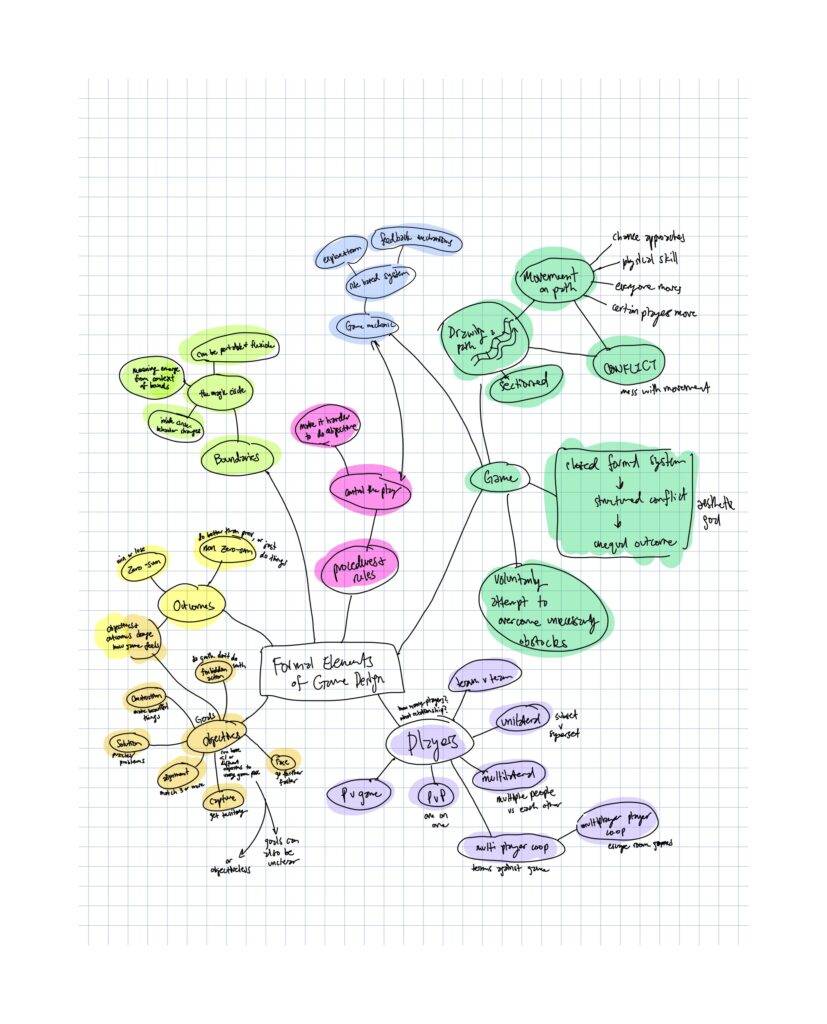 exploration
feedback
rule based system
Game mechanic
Movement
on path
chance approaches
physical skill
everyone moves
certain players move
Drawing a
path
sectioned
CONFLICT
mess with movement
can be portable + flexible
meaning emerge
from context
of bounds
the magic circle
inside circle
behavior changes
Boundaries
make it harder
to do objective
control the play
procedures +
rules
Game
closed formal system
structured conflict
unequal outcome
aesthetic
goal
voluntarily
attempt to
overcome unnecessary
obstacles
win or lose
Zero-sum
do better than prev, or just
do things
non zero-sum
Outcomes
objectives +
outcomes change
how game feels
Formal Elements
of Game Design
forbidden
action
Construction
make beautiful
things
Solution
puzzles
problems
alignment
match 3 or more
Goals
Objectives
capture
get territory
race
go further
faster
or
objectiveless
goals can
also be
unclear
how many players?
what relationship?
Players
team v team
unilateral
subset
v
superset
multilateral
multiple people
vs each other
P v game
PvP
one on
one
multi player coop
teams against game
multiplayer player
coop
escape room games